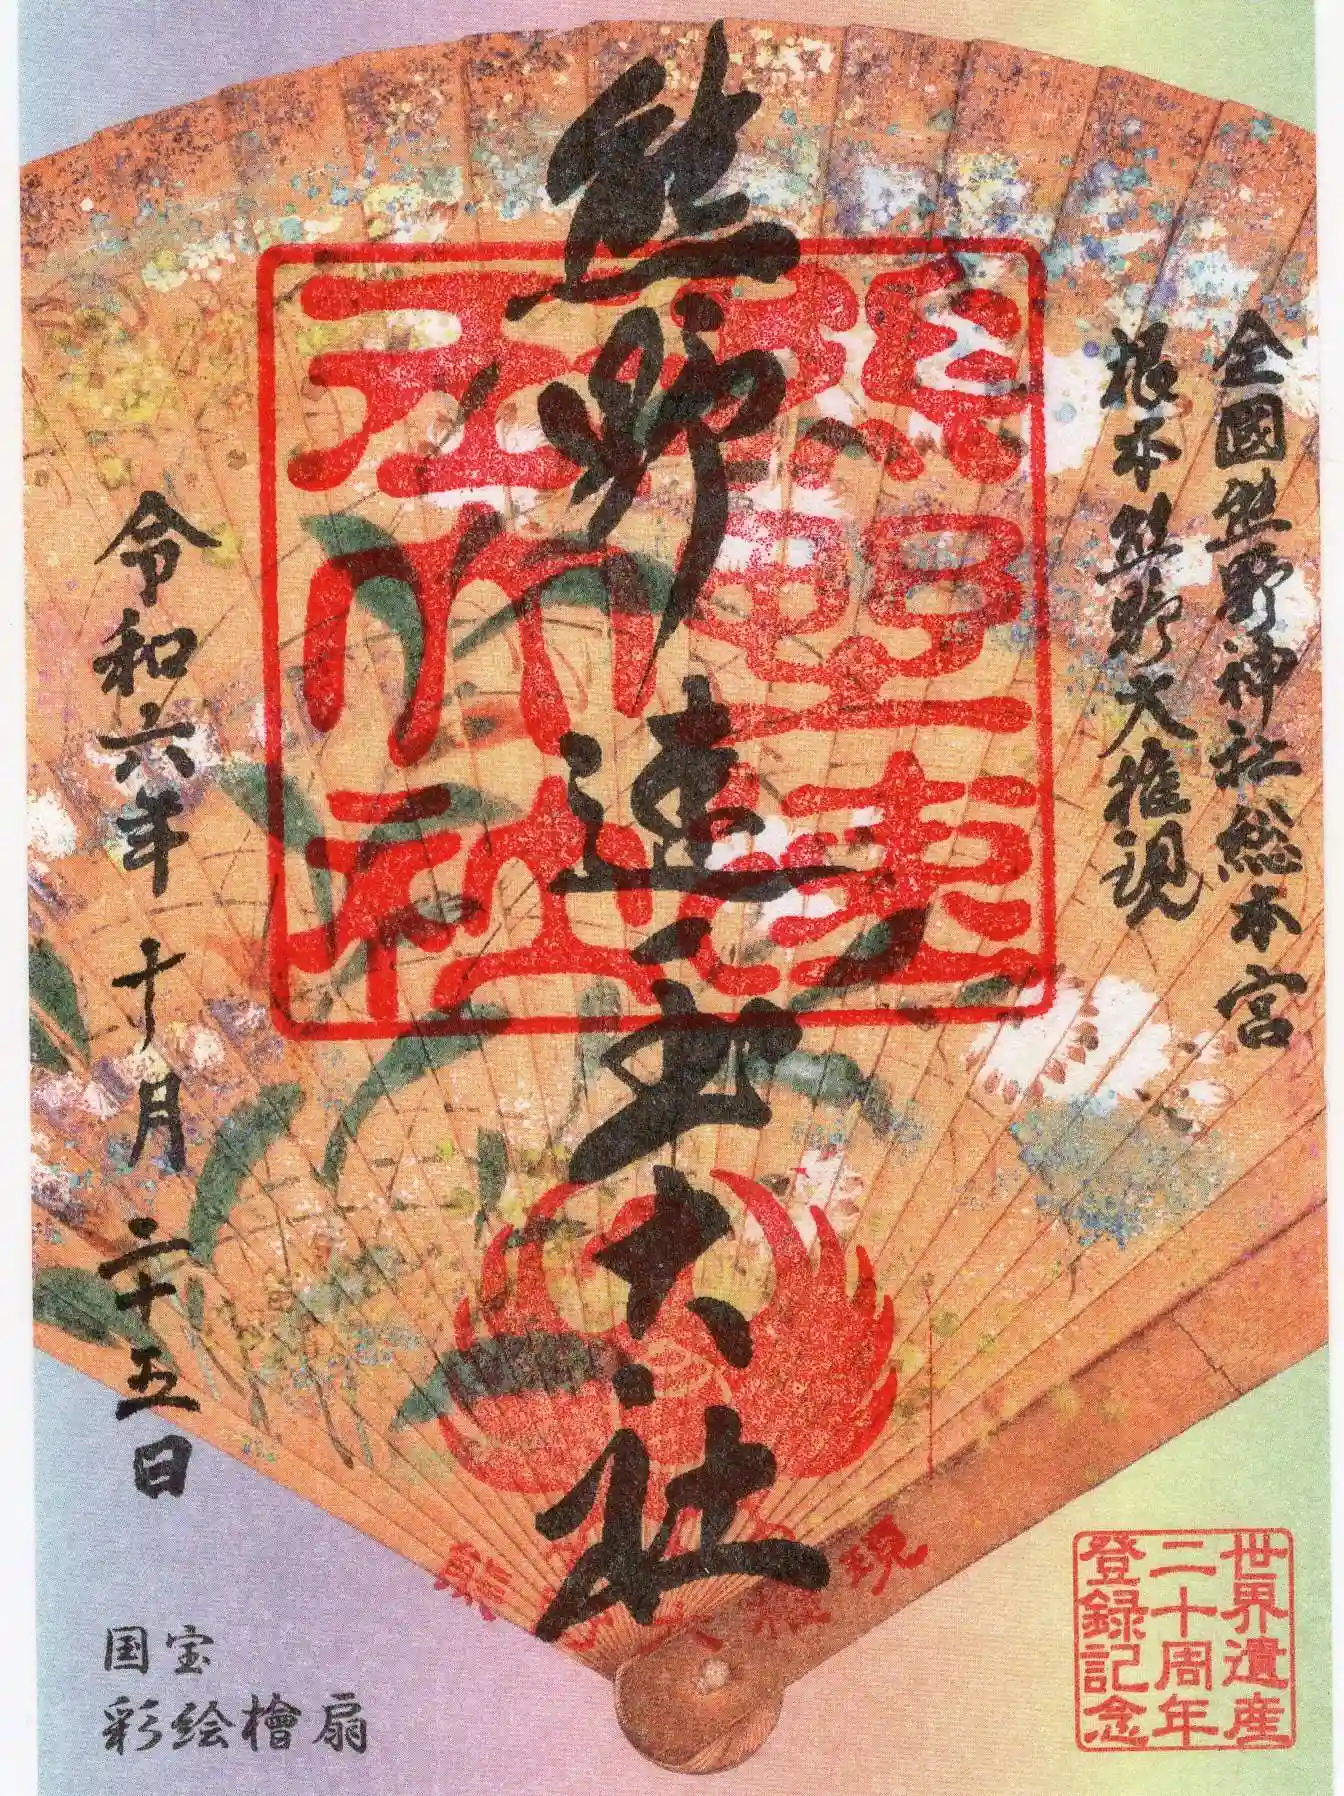 全國熊野神社総本宮
根本熊野大権現
熊野速玉大社
令和六年十月二十五日
熊野速
玉大社
国宝
彩絵檜扇
世界遺産
二十周年
登録記念